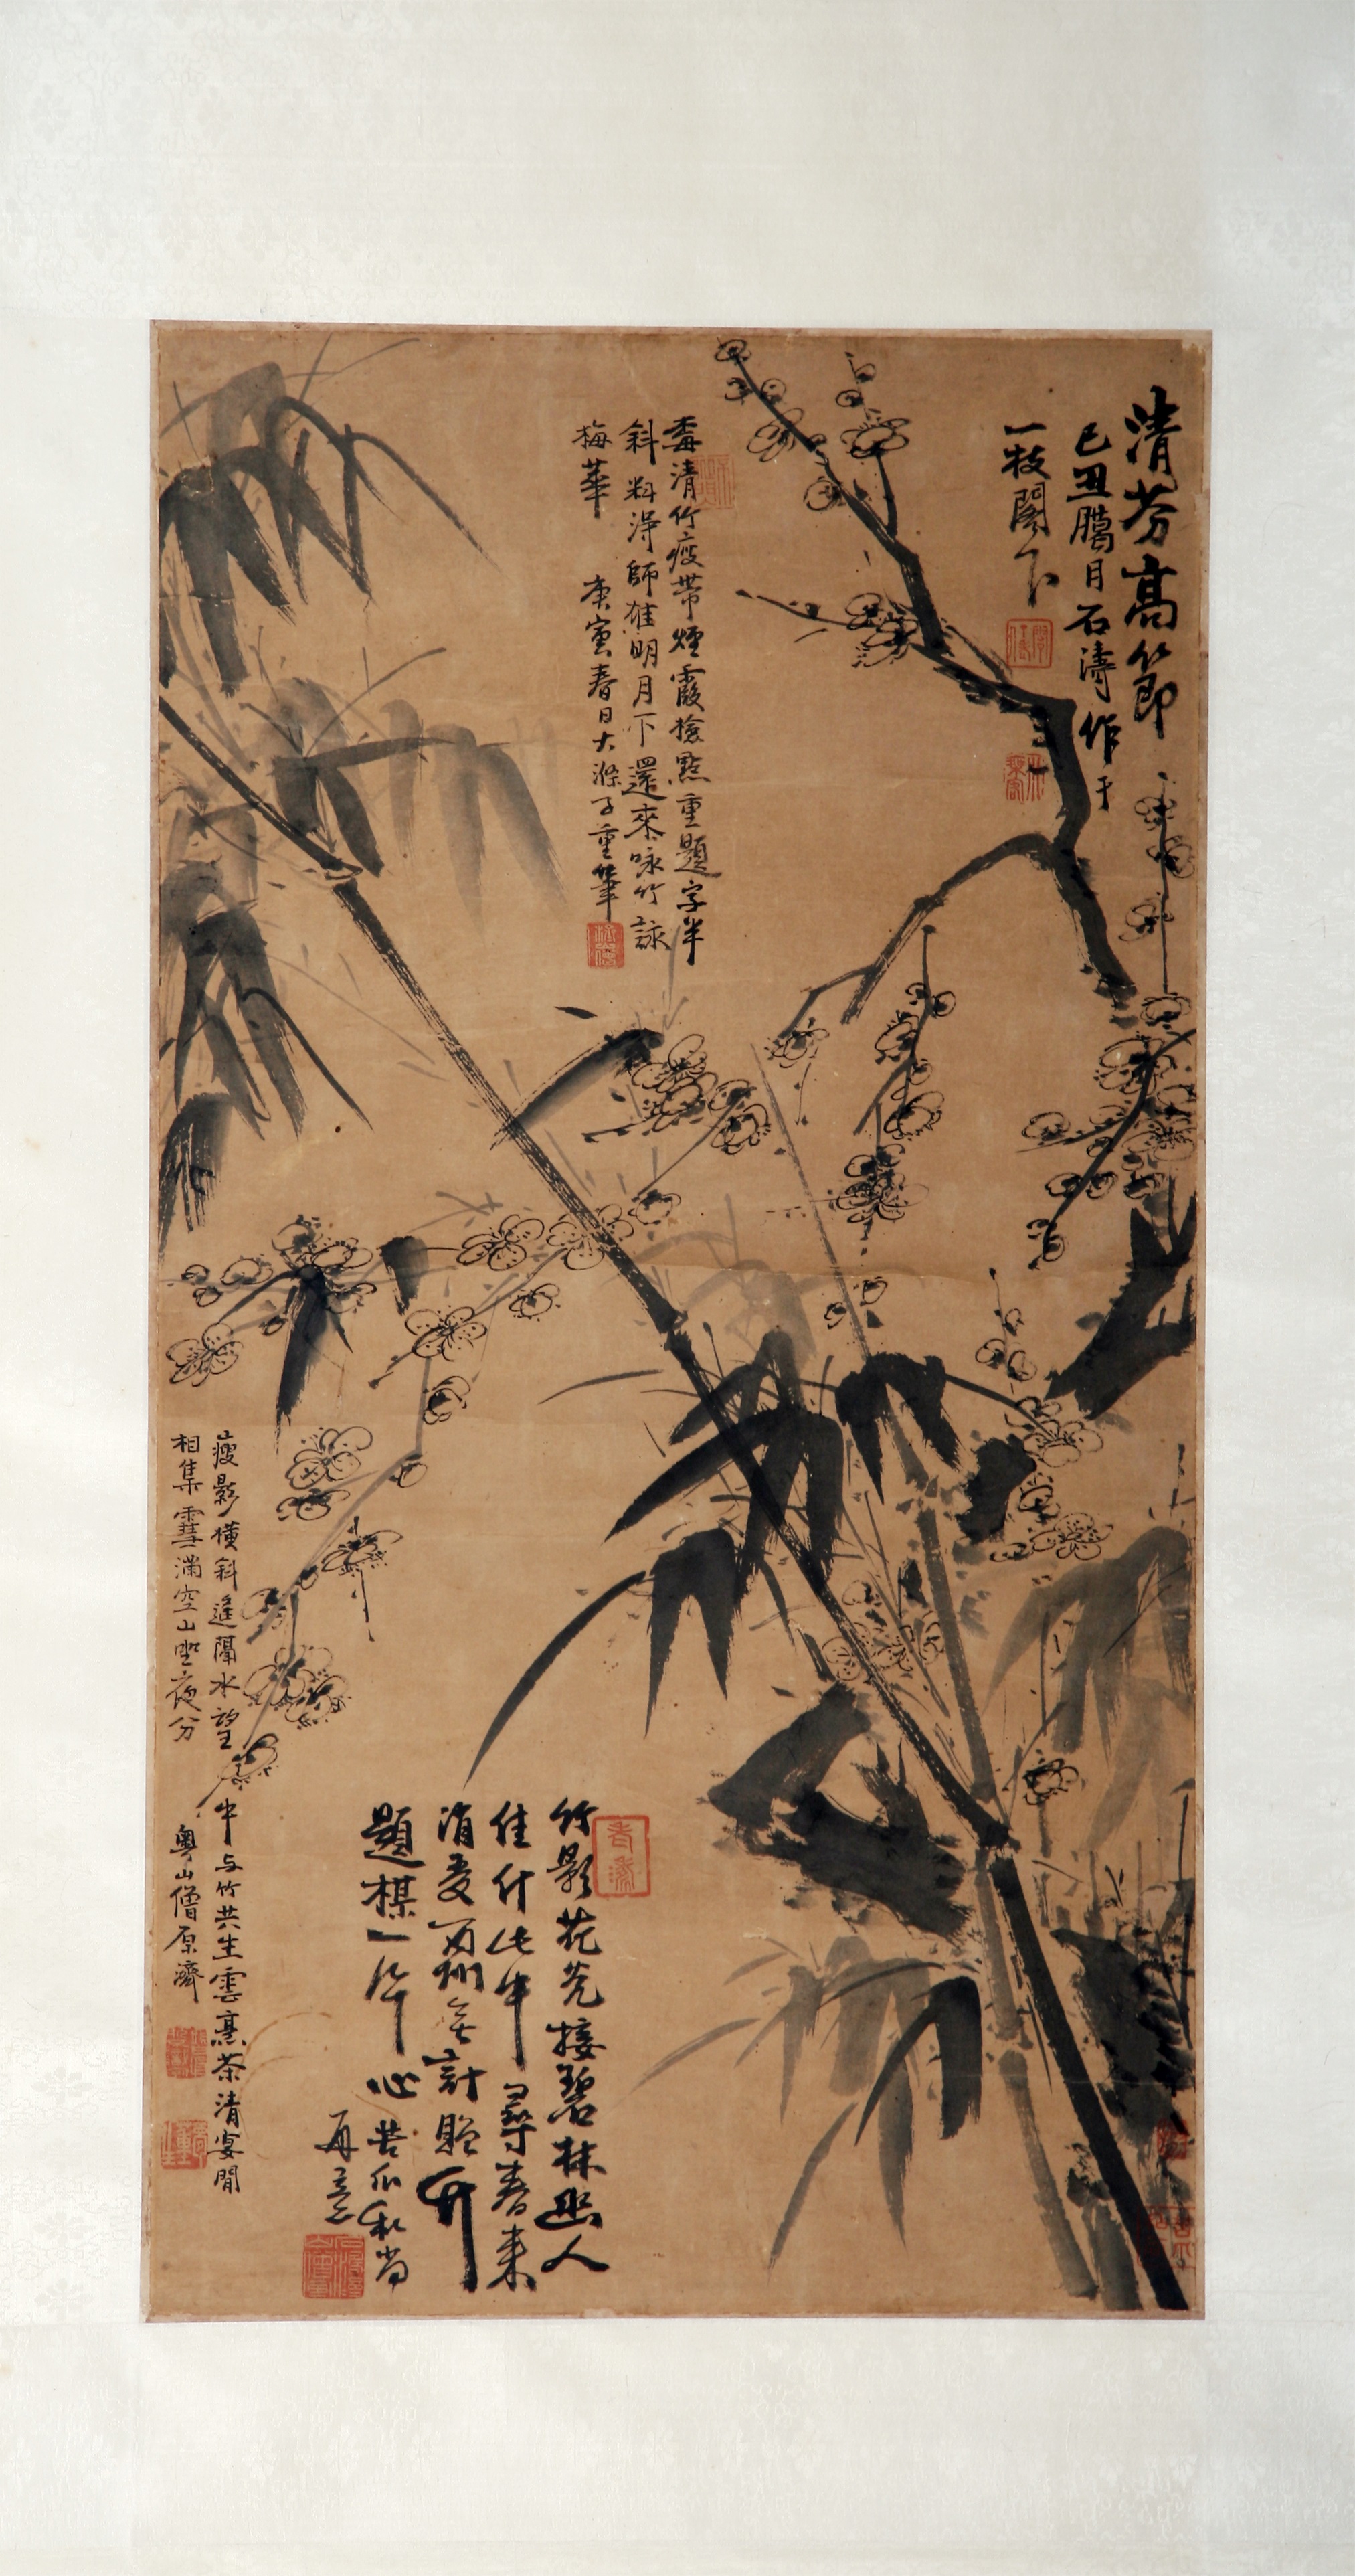 清芬高節
己丑臘月石濤作于
一枝閣下
清竹瘦帶煙霞撿點重題字半
斜料得師雄明月下還來咏竹詠
梅華 庚寅春日大滌子重筆
竹影花光接碧林幽人
佳什此中尋春來
消受 無計賸
題 一片心 苦瓜和尚
再意
瘦影橫斜 隔水望 中与竹共生雲烹茶清宴閒
相集雪滿空山坐夜分 粵山僧原濟